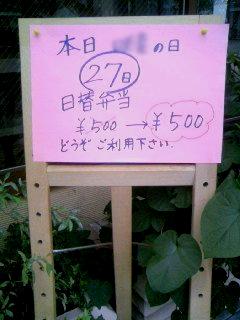 本日 の日
27日
日替弁当
¥500→¥500
どうぞご利用下さい